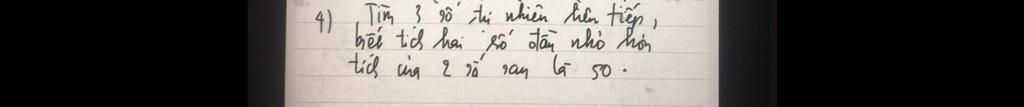 4) Tìm 3 số tự nhiên liên tiếp,
biết tích hai số đầu nhỏ hơn
tích của 2 số sau là 50.